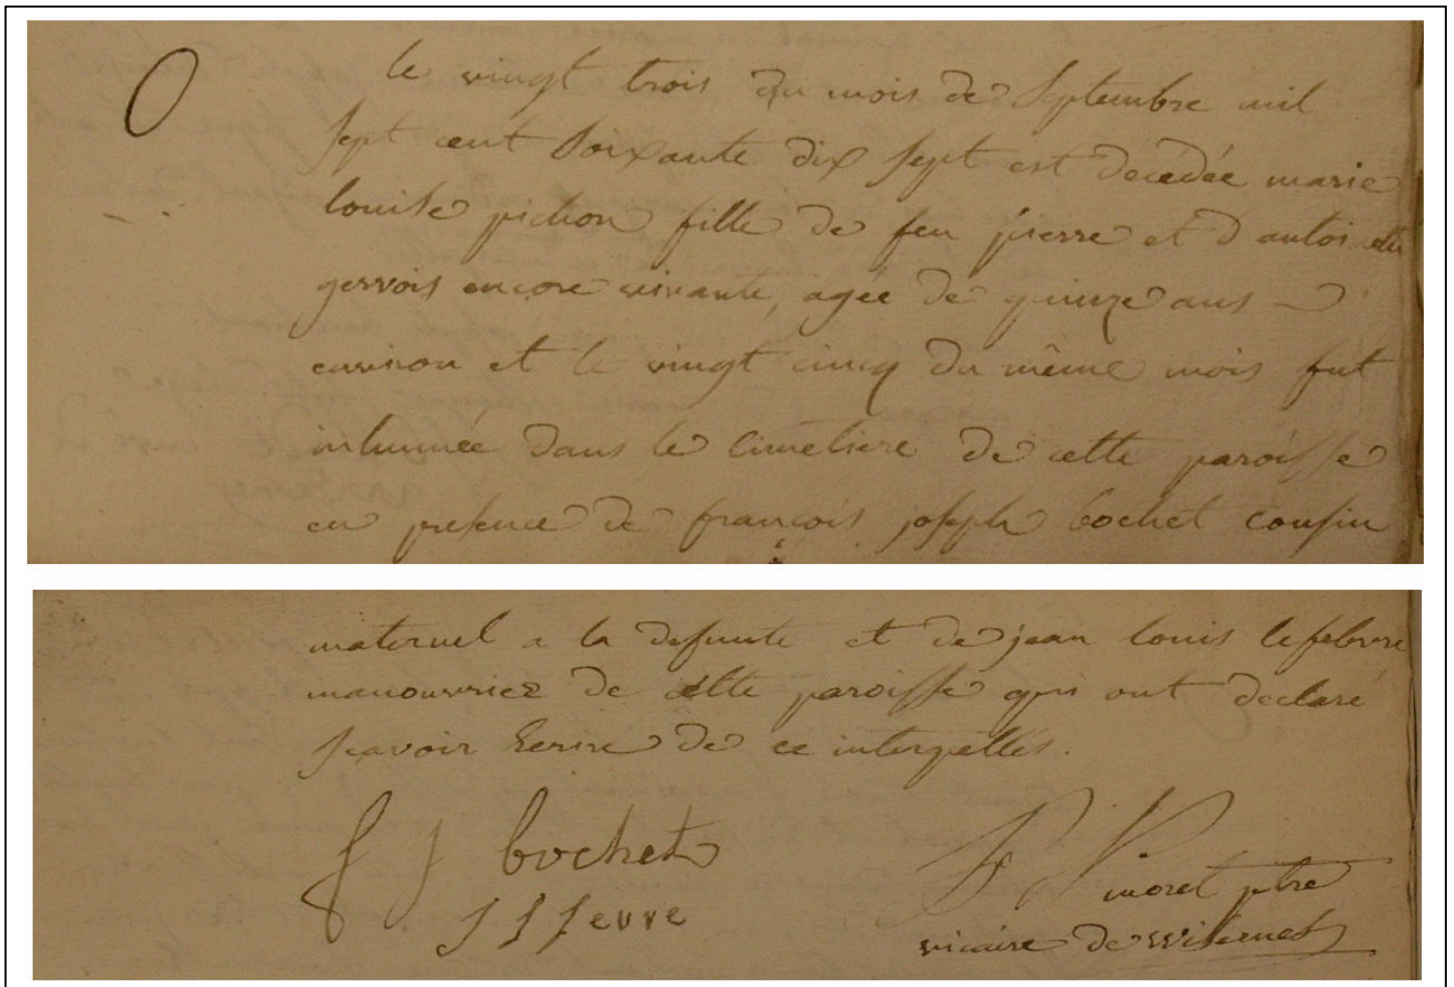 le vingt trois du mois de Septembre mil
sept cent soixante dix sept est décédée marie
louise pichon fille de feu pierre et d antoinette
gervois encore vivante, agée de quinze ans
environ et le vingt cinq du même mois fut
inhumée dans le cimetiere de cette paroisse
en presence de françois joseph bochet cousin
maternel a la defunte et de jean louis lefebvre
manouvrier de cette paroisse qui ont declaré
scavoir Ecrire de ce interpellés.
f j bochet
J l fevre
moret ptre
vicaire de wisernes